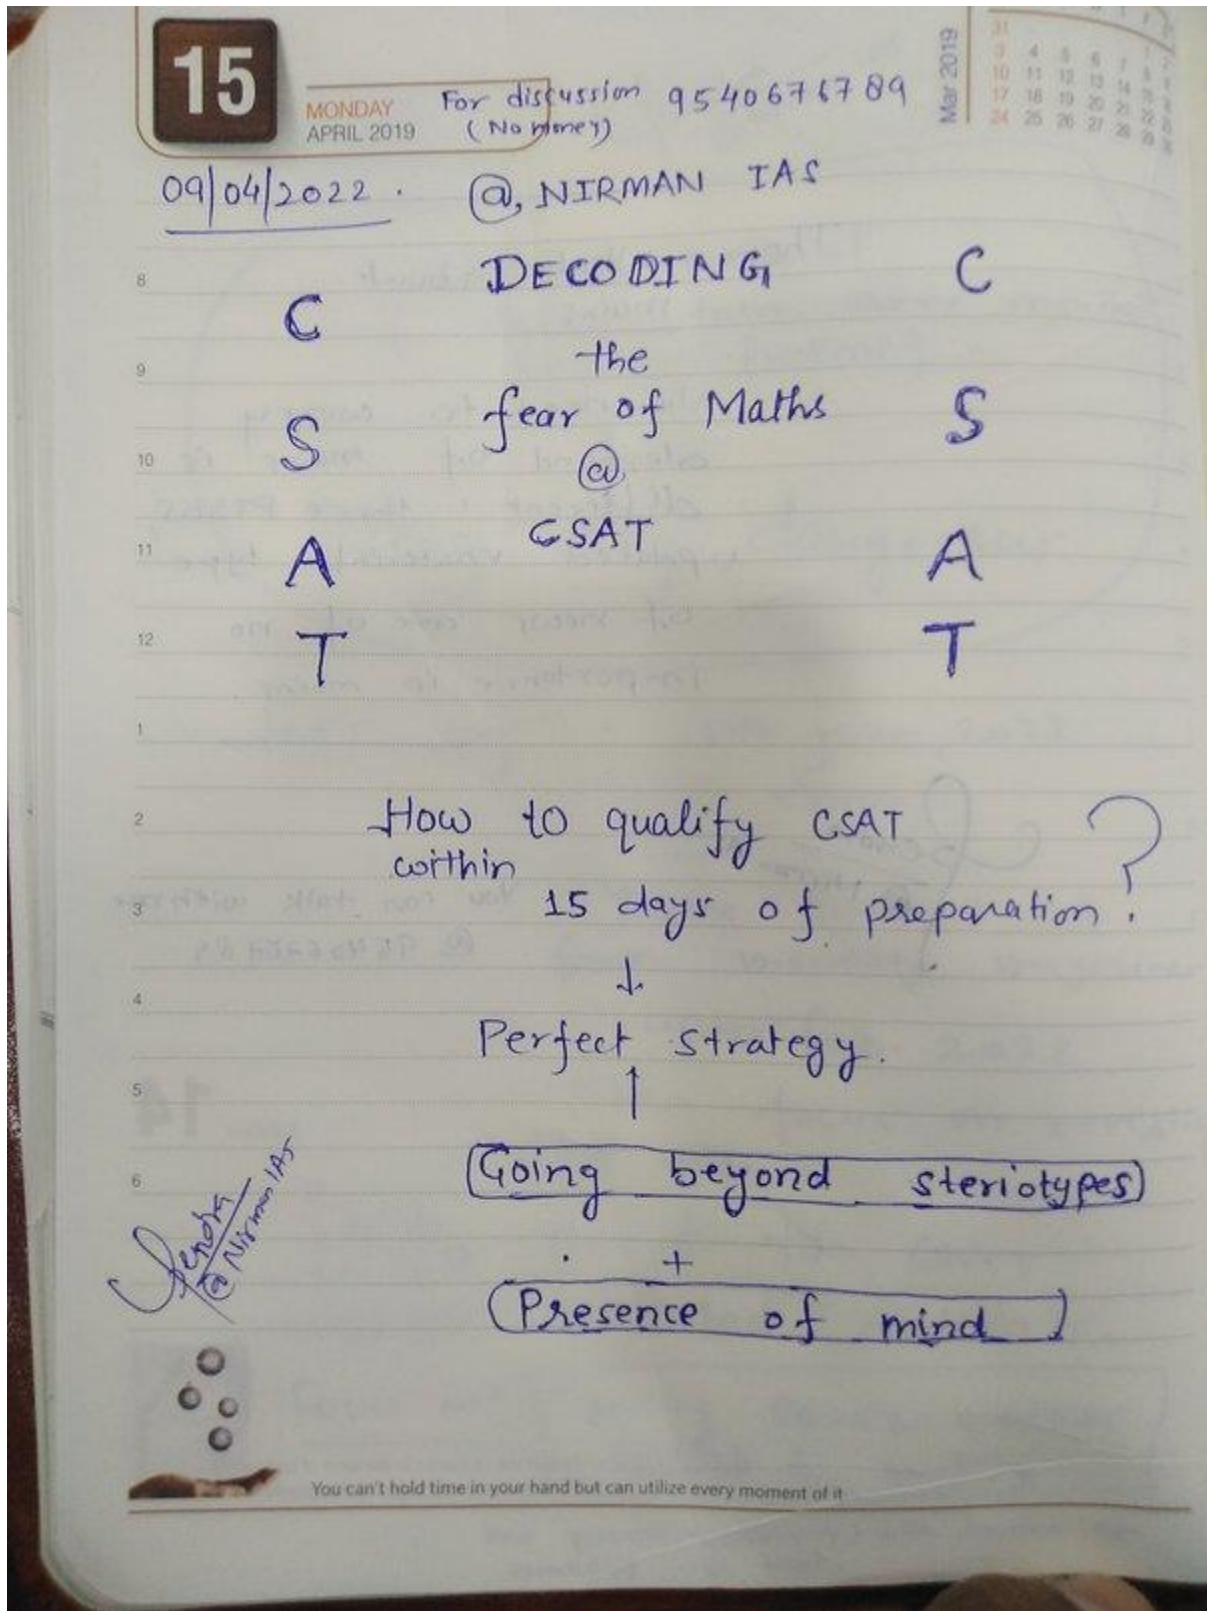 15
MONDAY
APRIL 2019
For discussion 9540676789
(No money)
Mar 2019
31
3 4 5 6 7
10 11 12 13 14
17 18 19 20 21
24 25 26 27 28
09/04/2022. @ NIRMAN IAS
DECODING
the
fear of Maths
@
CSAT
C
S
A
T
C
S
A
T
8
9
10
11
12
1
2
3
4
5
6
How to qualify CSAT
within
15 days of preparation ?
↓
Perfect strategy.
↑
Going beyond steriotypes
+
Presence of mind
@ Nirman IAS
You can't hold time in your hand but can utilize every moment of it